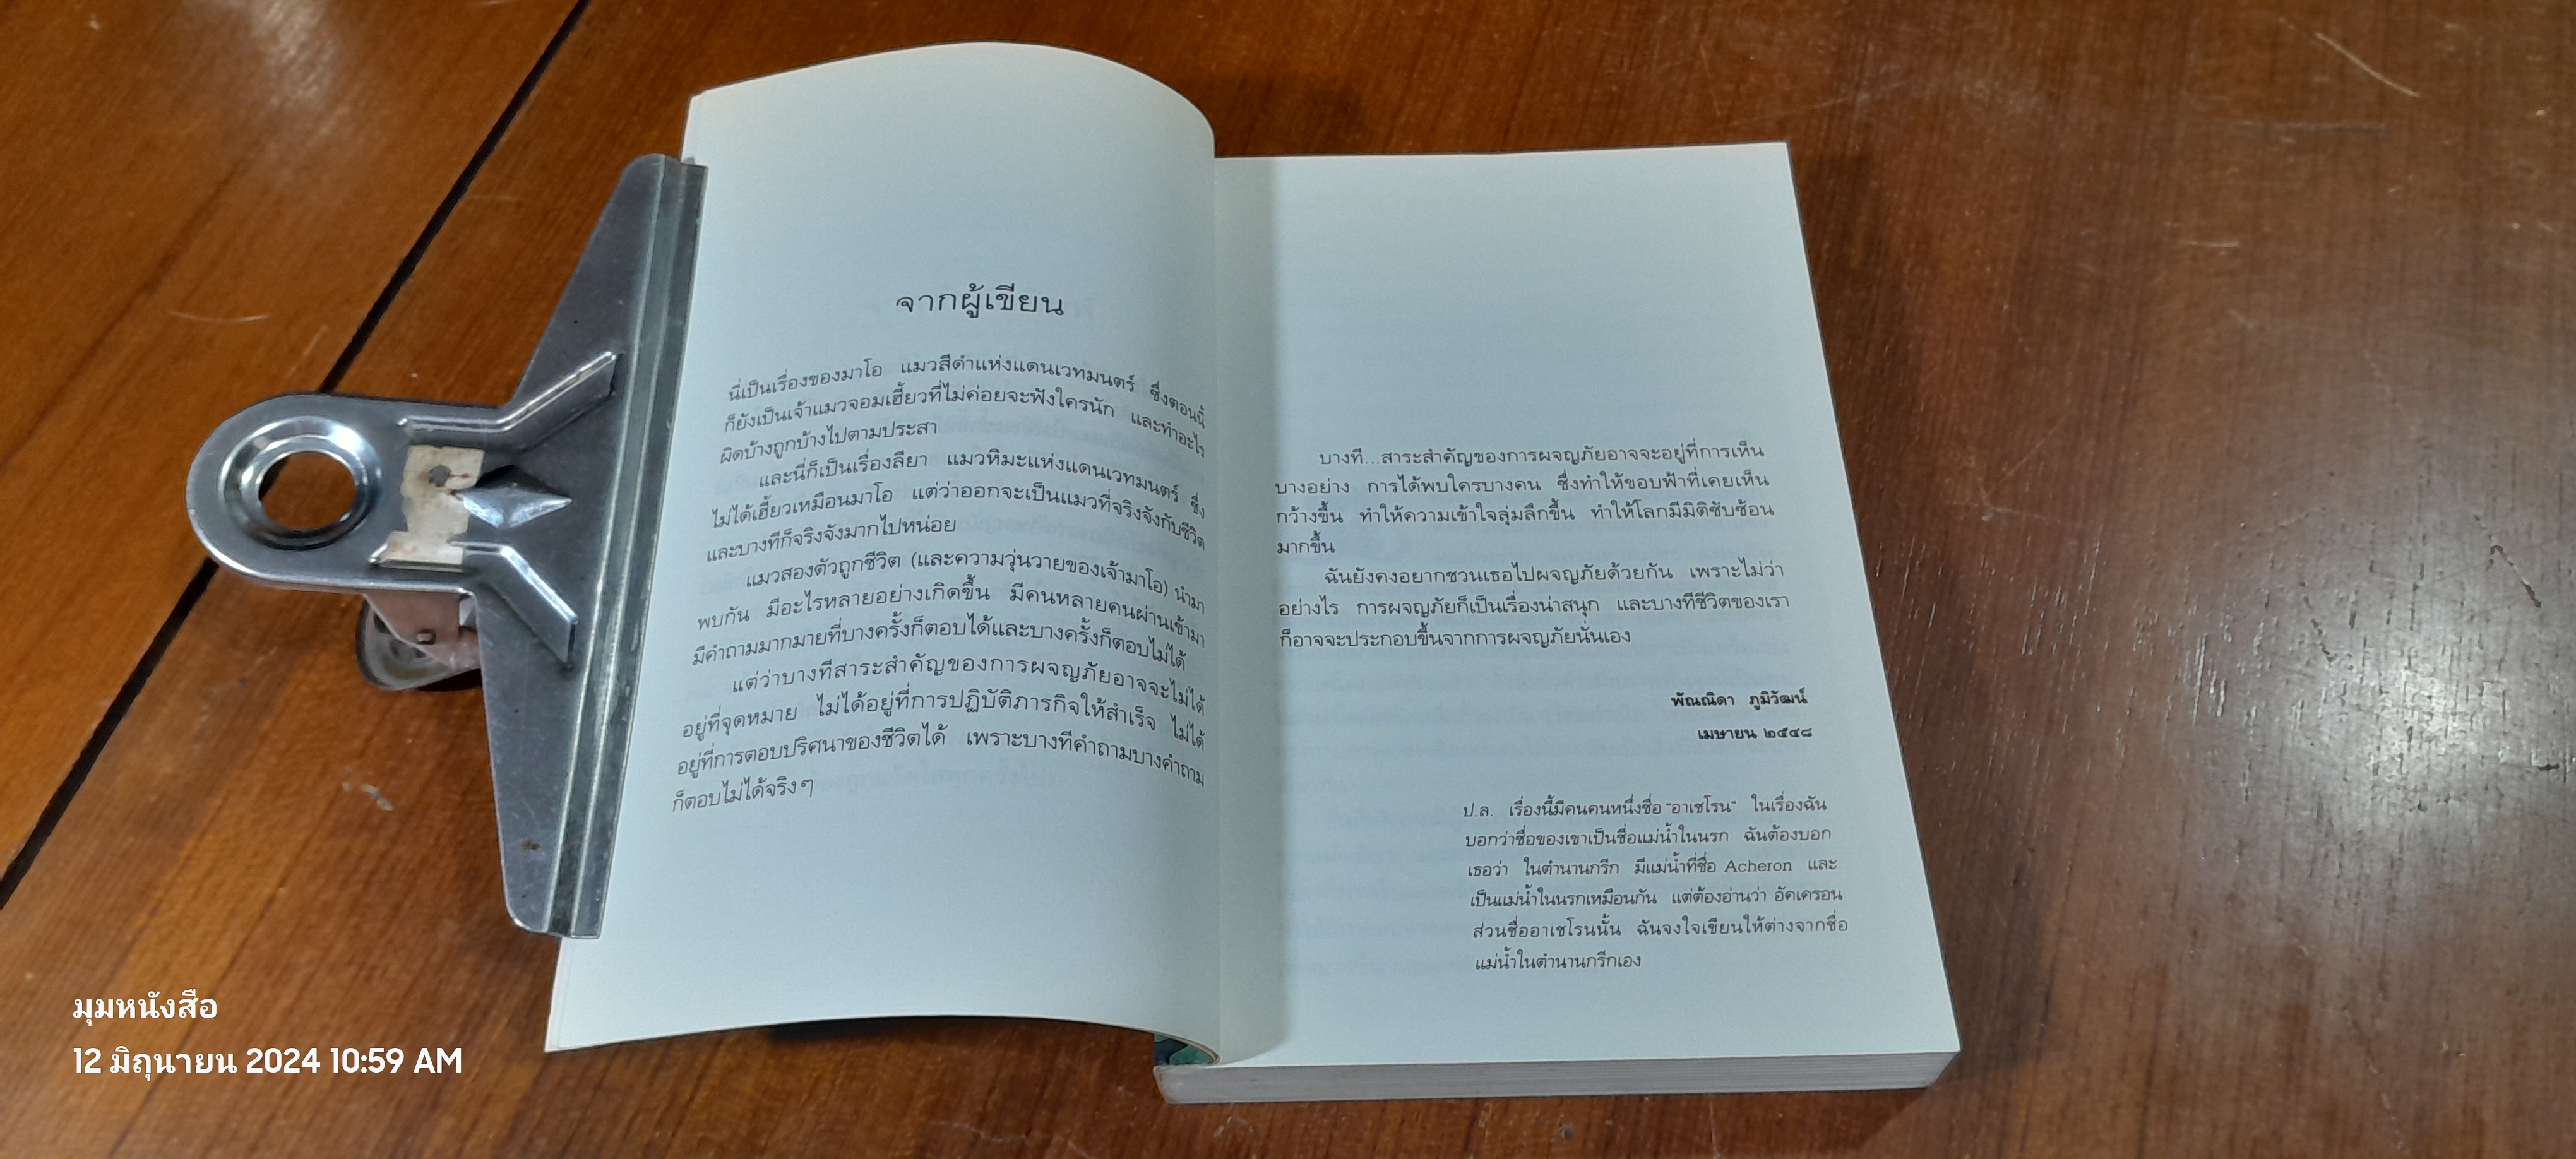 จากผู้เขียน
นี่เป็นเรื่องของมาโอ แมวสีดำแห่งแดนเวทมนตร์ ซึ่งตอนนี้
ก็ยังเป็นเจ้าแมวจอมเฮี้ยวที่ไม่ค่อยจะฟังใครนัก และทำอะไร
ผิดบ้างถูกบ้างไปตามประสา
และนี่ก็เป็นเรื่องลียา แมวหิมะแห่งแดนเวทมนตร์ ซึ่ง
ไม่ได้เฮี้ยวเหมือนมาโอ แต่ว่าออกจะเป็นแมวที่จริงจังกับชีวิต
และบางทีก็จริงจังมากไปหน่อย
แมวสองตัวถูกชีวิต (และความวุ่นวายของเจ้ามาโอ) นำมา
พบกัน มีอะไรหลายอย่างเกิดขึ้น มีคนหลายคนผ่านเข้ามา
มีคำถามมากมายที่บางครั้งก็ตอบได้และบางครั้งก็ตอบไม่ได้
แต่ว่าบางทีสาระสำคัญของการผจญภัยอาจจะไม่ได้
อยู่ที่จุดหมาย ไม่ได้อยู่ที่การปฏิบัติภารกิจให้สำเร็จ ไม่ได้
อยู่ที่การตอบปริศนาของชีวิตได้ เพราะบางทีคำถามบางคำถาม
ก็ตอบไม่ได้จริงๆ
บางที...สาระสำคัญของการผจญภัยอาจจะอยู่ที่การเห็น
บางอย่าง การได้พบใครบางคน ซึ่งทำให้ขอบฟ้าที่เคยเห็น
กว้างขึ้น ทำให้ความเข้าใจลุ่มลึกขึ้น ทำให้โลกมีมิติซับซ้อน
มากขึ้น
ฉันยังคงอยากชวนเธอไปผจญภัยด้วยกัน เพราะไม่ว่า
อย่างไร การผจญภัยก็เป็นเรื่องน่าสนุก และบางทีชีวิตของเรา
ก็อาจจะประกอบขึ้นจากการผจญภัยนั่นเอง
พัณณิดา ภูมิวัฒน์
เมษายน ๒๕๔๘
ป.ล. เรื่องนี้มีคนคนหนึ่งชื่อ “อาเชโรน” ในเรื่องฉัน
บอกว่าชื่อของเขาเป็นชื่อแม่น้ำในนรก ฉันต้องบอก
เธอว่า ในตำนานกรีก มีแม่น้ำที่ชื่อ Acheron และ
เป็นแม่น้ำในนรกเหมือนกัน แต่ต้องอ่านว่า อัคเครอน
ส่วนชื่ออาเชโรนนั้น ฉันจงใจเขียนให้ต่างจากชื่อ
แม่น้ำในตำนานกรีกเอง
มุมหนังสือ
12 มิถุนายน 2024 10:59 AM